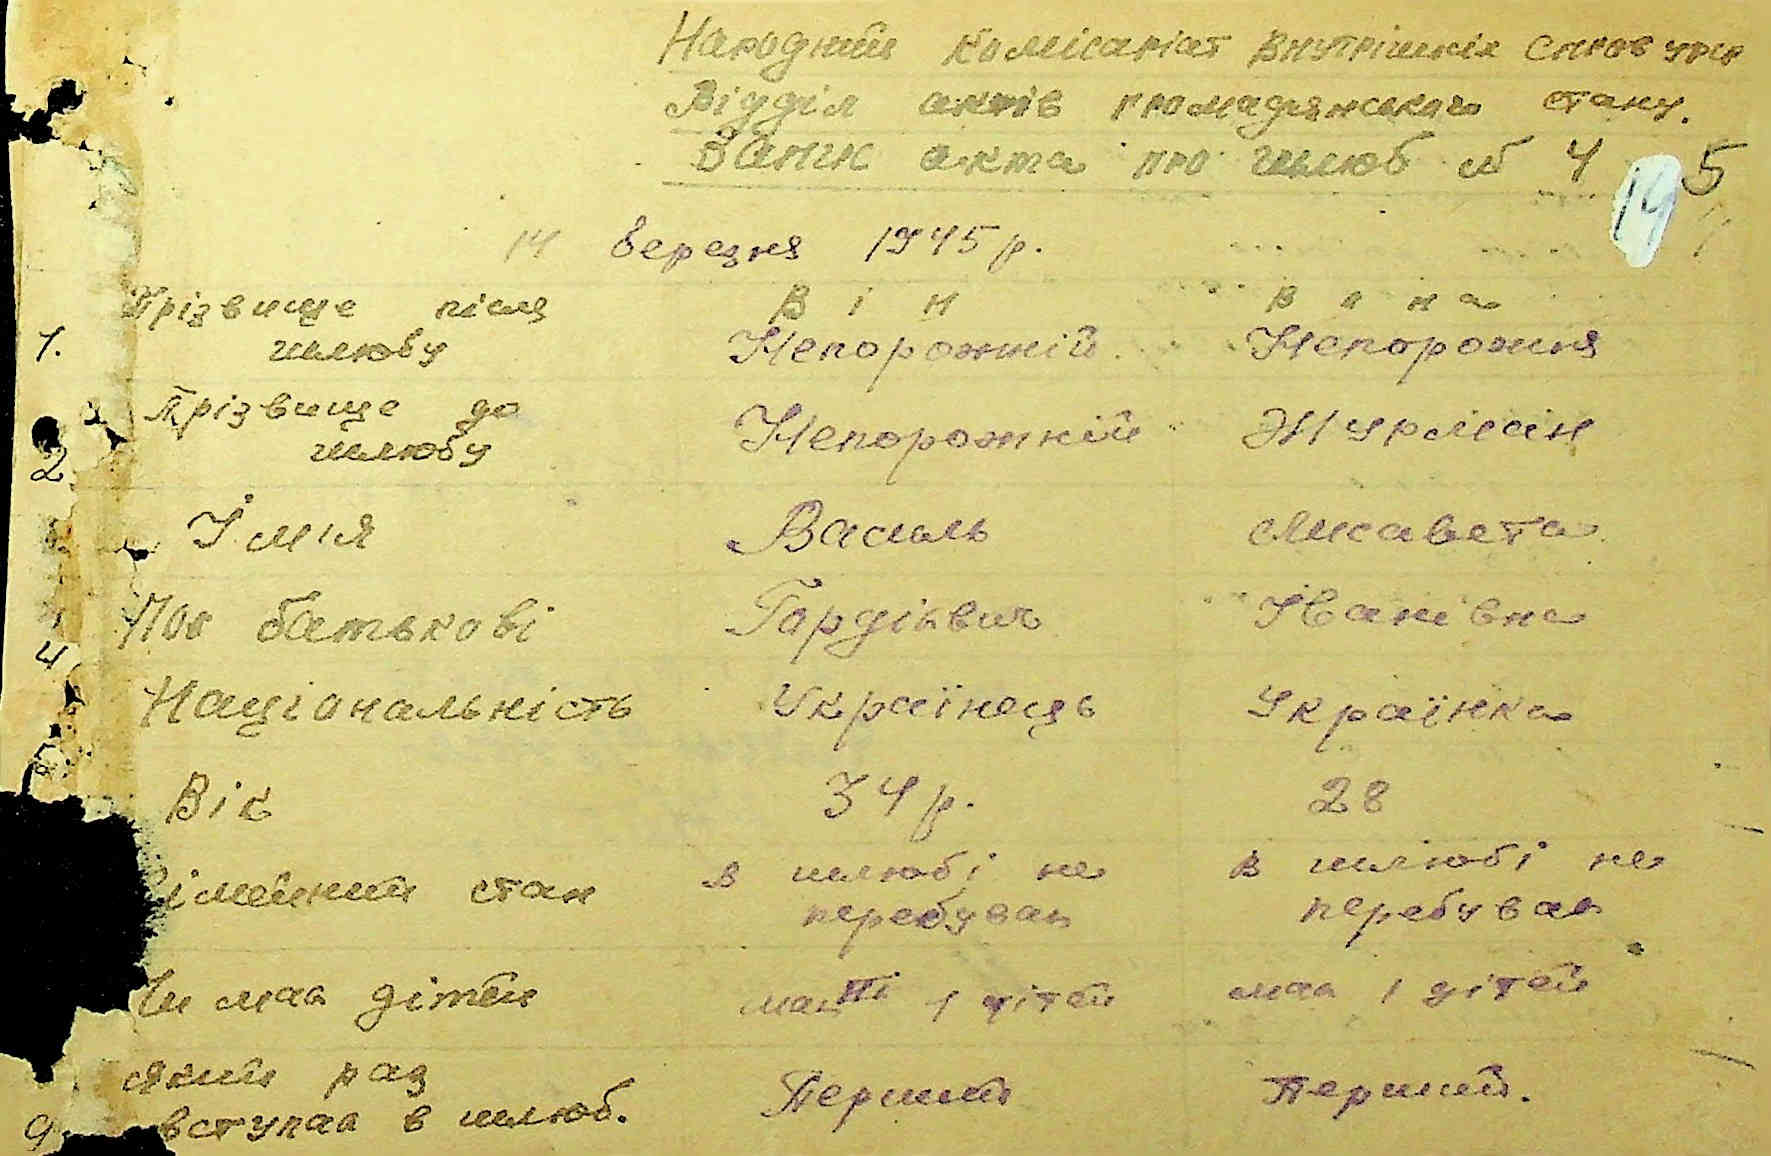 Народний Комісаріат Внутрішніх Справ УРСР
Відділ актів громадянського стану.
Запис акта про шлюб № 4
5
14
14 березня 1945 р.
Прізвище після Він Вона
1. шлюбу Непорожній Непорожня
Прізвище до
2 шлюбу Непорожній
Ім'я Василь Лисавета
По батькові Гордієвич Іванівна
4
Національність Українець Українка
5
Вік 34 р. 28
сімейний стан в шлюбі не в шлюбі не
перебував перебував
Чи має дітей має 1 дітей має 1 дітей
Який раз
9. вступає в шлюб. Перший Перший.